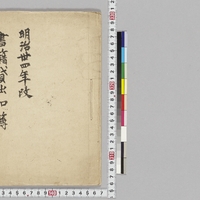 明治卅四年改
書籍貸出口簿